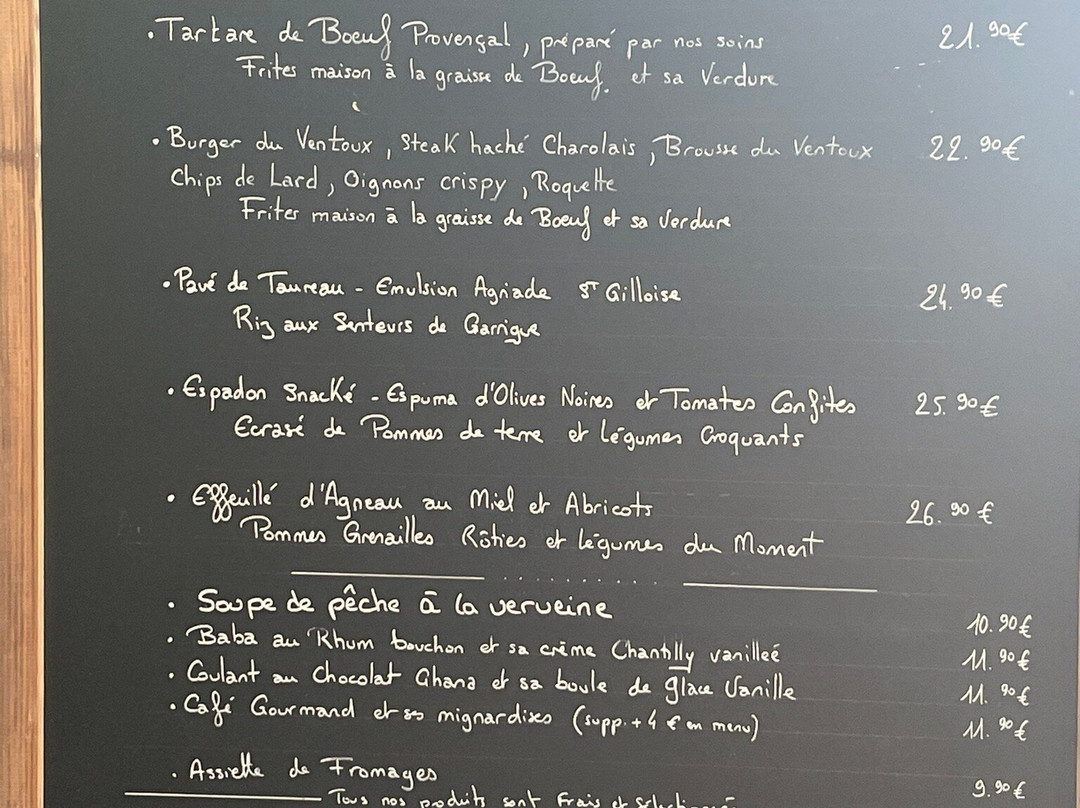 • Tartare de Boeuf Provençal, préparé par nos soins 21.90€
Frites maison à la graisse de Boeuf. et sa Verdure
• Burger du Ventoux, Steak haché Charolais, Brousse du Ventoux 22.90€
Chips de Lard, Oignons crispy, Roquette
Frites maison à la graisse de Boeuf et sa Verdure
• Pavé de Taureau - Emulsion Agriade St Gilloise 24.90€
Riz aux Senteurs de Garrigue
• Espadon Snacké - Espuma d'Olives Noires et Tomates Confites 25.90€
Ecrasé de Pommes de terre et légumes Croquants
• Effeuillé d'Agneau au Miel et Abricots 26.90€
Pommes Grenailles Rôties et légumes du Moment
• Soupe de pêche à la verveine 10.90€
• Baba au Rhum bouchon et sa crème Chantilly vanilleé 11.90€
• Coulant au Chocolat Ghana et sa boule de glace Vanille 11.90€
• Café Gourmand et ses mignardises (supp. + 4 € en menu) 11.90€
• Assiette de Fromages 9.90€
Tous nos produits sont Frais et